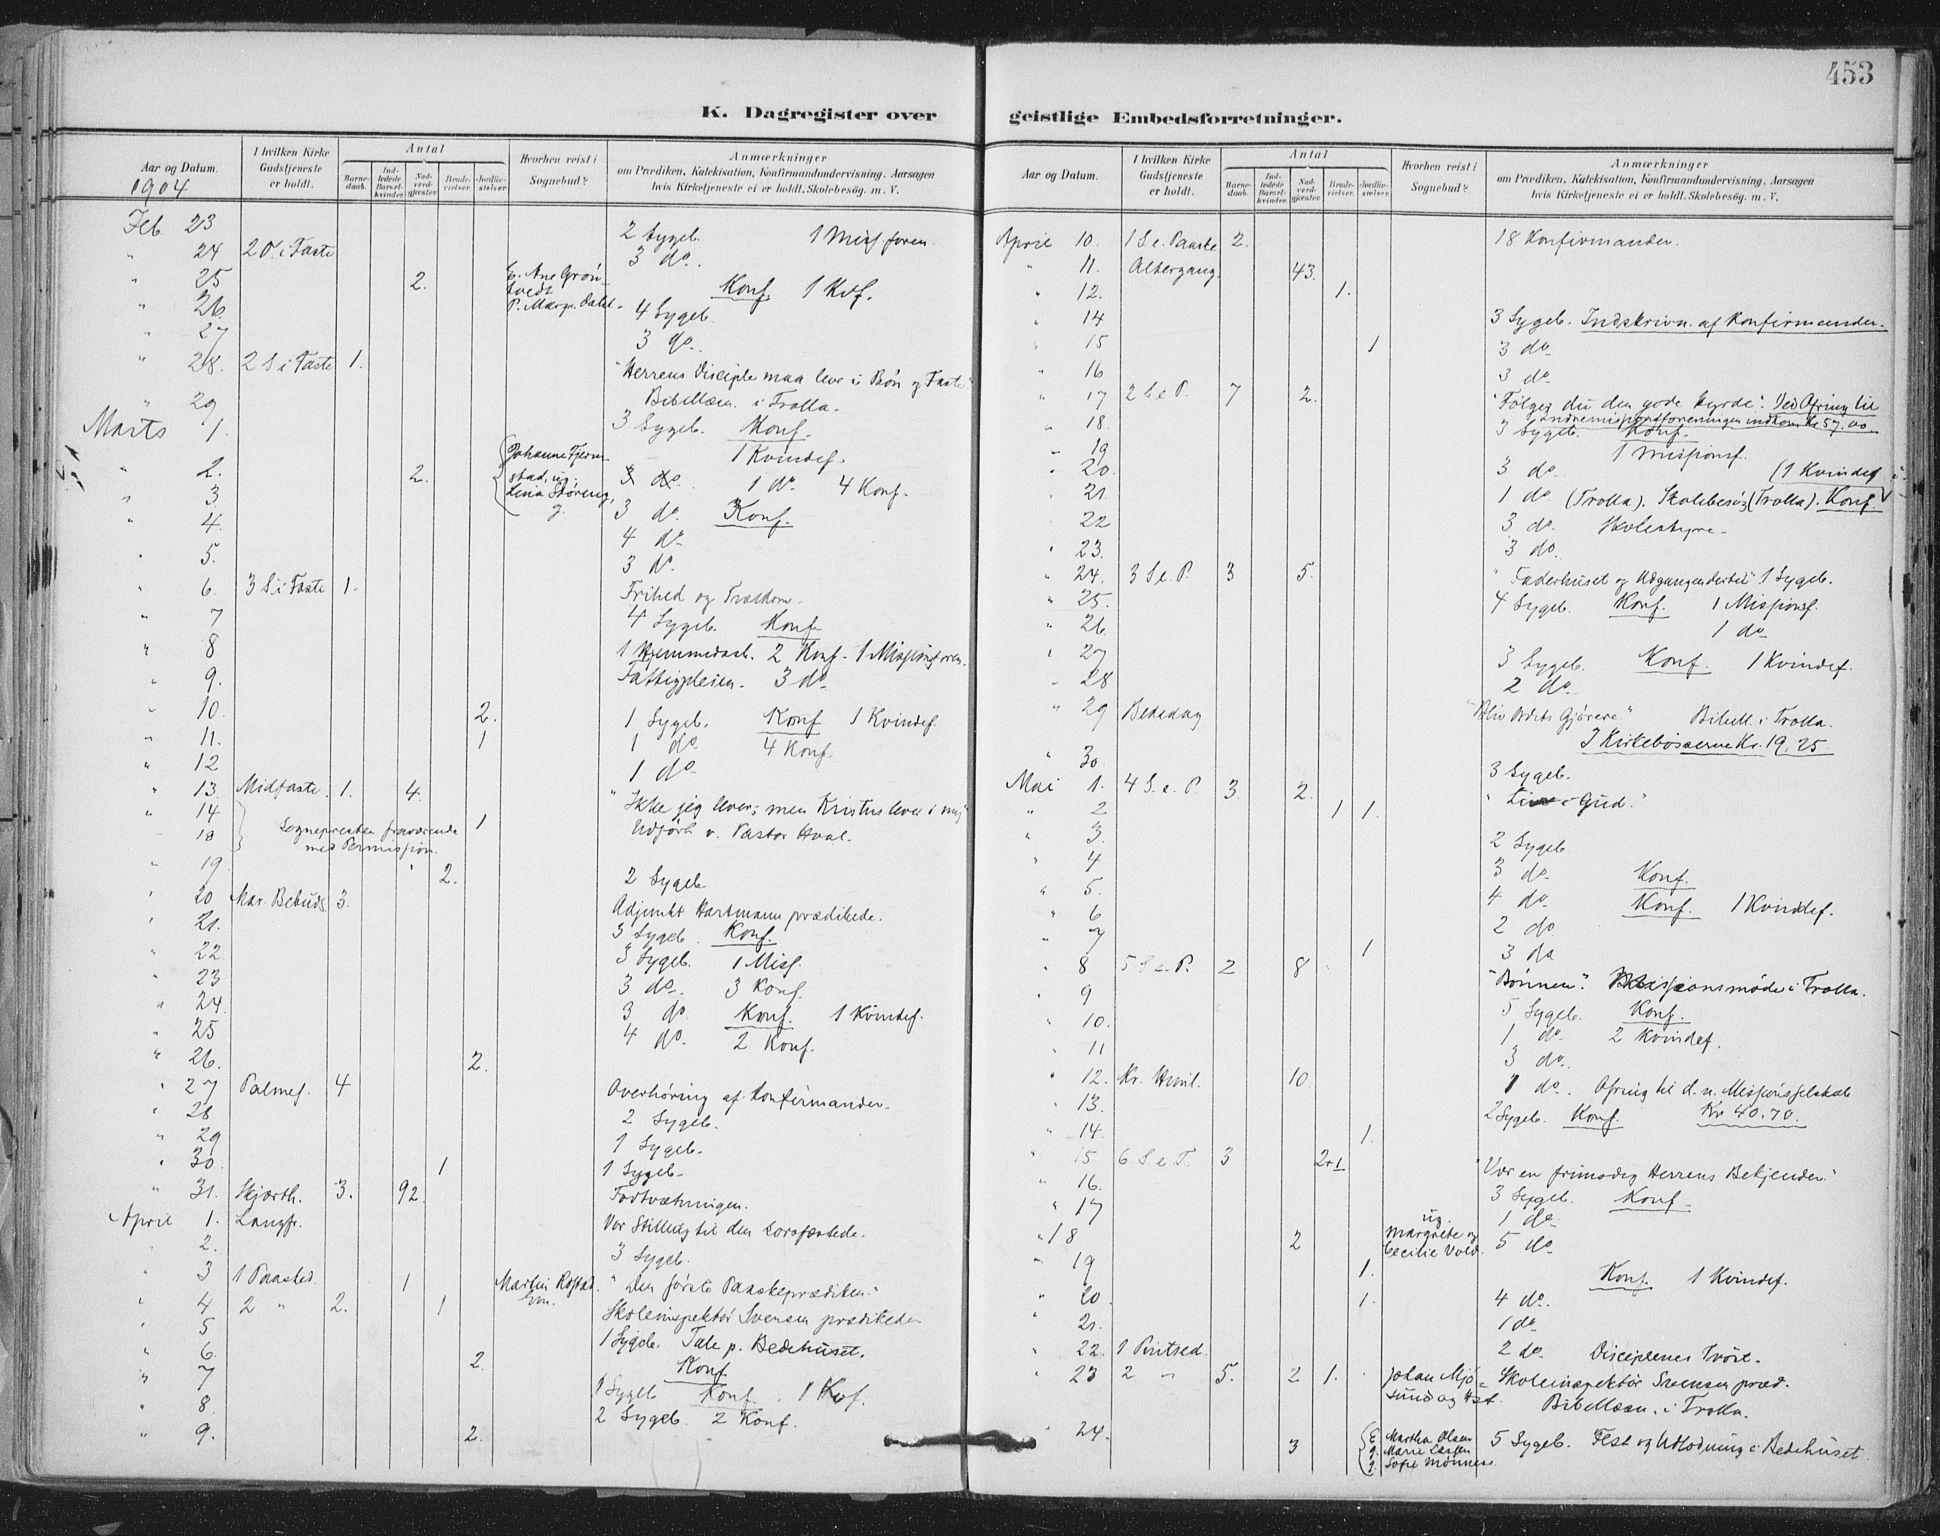 453
K. Dagregister over
Aar og Datum.
I hvilken Kirke Gudstjeneste er holdt.
Antal
Barnedaab.
Indledede Barselkvinder.
Nadverdgjester.
Brudevielser.
Jordfæstelser.
Hvorhen reist i Sognebud?
Anmærkninger
om Prædiken, Katekisation, Konfirmandundervisning, Aarsagen
hvis Kirketjeneste ei er holdt, Skolebesøg. m. V.
1904
Feb. 23 2 Sygeb. 1 Missforen.
" 24 2 O. i Faste 3 do.
" 25 2. Ane Grön- Konf. 1 Kvf.
" 26. 4 Sygeb
" 27 3 do.
" 28. 2 S i Faste 1. "Herrens Disciple maa leve i Bön og Faste"
" 29 Bibellæsn. i Trolla.
Marts 1. 3 Sygeb. Konf.
1 Kvindef.
" 2. 2. Johanne 3 do. 1 do 4 Konf.
" 3. 3 do. Konf.
" 4. 4 do
" 5. 3 do.
" 6. 3 S i Faste 1. Frihed og Trældom.
" 7 4 Sygeb. Konf.
" 8 1 Hjemmedaab. 2 Konf. 1 Missionsforen.
" 9. Fattigpleien. 3 do
" 10. 2. 1 Sygeb. Konf 1 Kvindef.
" 11. 1 1 do 4 Konf.
" 12 1 do
" 13. Midfaste. 1. 4. "Ikke jeg lever; men Kristus lever i mig"
" 14 Sognepresten fraværende 1 Udført v. Pastor Hval.
- 18 med Permission.
" 19 2. 2 Sygeb
" 20 Mar. Bebuds. 3. Adjunkt Hartmann prædikede.
" 21. 3 Sygeb. Konf.
" 22 3 Sygeb. 1 Miss.
" 23 3 do. 3 Konf.
" 24. 3 do. Konf. 1 Kvindef.
" 25 4 do. 2 Konf.
" 26. 2.
" 27 Palmes. 4 Overhøring af Konfirmander.
" 28 2 Sygeb.
" 29 1 Sygeb.
" 30. 1 1 Sygeb.
" 31. Skjærth. 3. 92. Fodtvætningen.
April 1. Langfr. Vor Stilling til den Korsfæstede.
" 2. 3 Sygeb.
" 3 1 Paasked. 1 Martin "Den förste Paaskeprædiken."
" 4 2 " 2. 1 Skoleinspektör Svensen prædikede
" 5 1 Sygeb. Tale p. Bedehuset.
" 6. 2. Konf
" 7 1 Sygeb Konf. 1 Kvf.
" 8. 2 Sygeb. 2 Konf.
" 9. 2.
geistlige Embedsforretninger.
Aar og Datum.
I hvilken Kirke Gudstjeneste er holdt.
Antal
Barnedaab.
Indledede Barselkvinder.
Nadverdgjester.
Brudevielser.
Jordfæstelser.
Hvorhen reist i Sognebud?
Anmærkninger
om Prædiken, Katekisation, Konfirmandundervisning, Aarsagen
hvis Kirketjeneste ei er holdt, Skolebesøg. m. V.
April 10. 1 S. e. Paaske 2. 18 Konfirmander.
" 11. Altergang. 43.
" 12. 1.
" 14 3 Sygeb. Indskrivn. af Konfirmander.
" 15 1 3 do.
" 16 3 do.
" 17 2 S e P. 7 2. "Følger du den gode Hyrde". Ved Ofring til
" 18. 3 Sygeb. Konf.
" 19 1 Missionsf.
" 20. 3 do. (1 Kvindef
" 21. 1 do (Trolla). Skolebesøg (Trolla). Konf.
" 22 3 do. Skolestyre.
" 23. 3 do.
" 24. 3 S e. P. 3 5. "Faderhuset og Adgangen dertil" 1 Sygeb.
" 25. 4 Sygeb. Konf. 1 Missionsf.
" 26. 1 do
" 27 3 Sygeb. Konf. 1 Kvindef.
" 28 2 do.
" 29 Bededag "Bliv Ordets Gjörere" Bibell. i Trolla.
I Kirkebösserne Kr. 19,25
" 30.
Mai 1. 4 S. e. P. 3. 2. 3 Sygeb.
" 2 1 1. Gud."
" 3.
" 4 2 Sygeb.
" 5. 3 do. Konf.
" 6 4 do. Konf. 1 Kvindef.
" 7 1 2 do
" 8 5 S e. P. 2 8 3 do
" 9 "Bönnen". Missionsmöde i Trolla.
" 10. 5 Sygeb. Konf.
" 11 1 do. 2 Kvindef.
3 do.
" 12. Kr. Himl. 10. 1 do. Ofring til d. n. Missionsselskab
" 13. 2 Sygeb. Konf. Kr 40.70.
" 14. 1.
" 15 6 S. e. P. 3 2+1 "Vær en frimodig Herrens Bekjender."
" 16. 3 Sygeb. Konf.
" 17 1 do.
" 18 2 ug. Margrete og Cecilie Vold. 5 do
" 19 1. Konf. 1 Kvindef.
" 20. 1. 4 do.
" 21. 1 do
" 22. 1 Pintsed. 2 do. Disciplenes Tröst.
" 23 2 " 5. 2 1. Johan Mjö- Skoleinspektör Svensen præd.
sund og Hst. Bibellæsn. i Trolla.
" 24. 3 E. Martha Olsen 5 Sygeb. Fest og Udlodning i Bedehuset.
g. Marie Larsen
g. Sofie